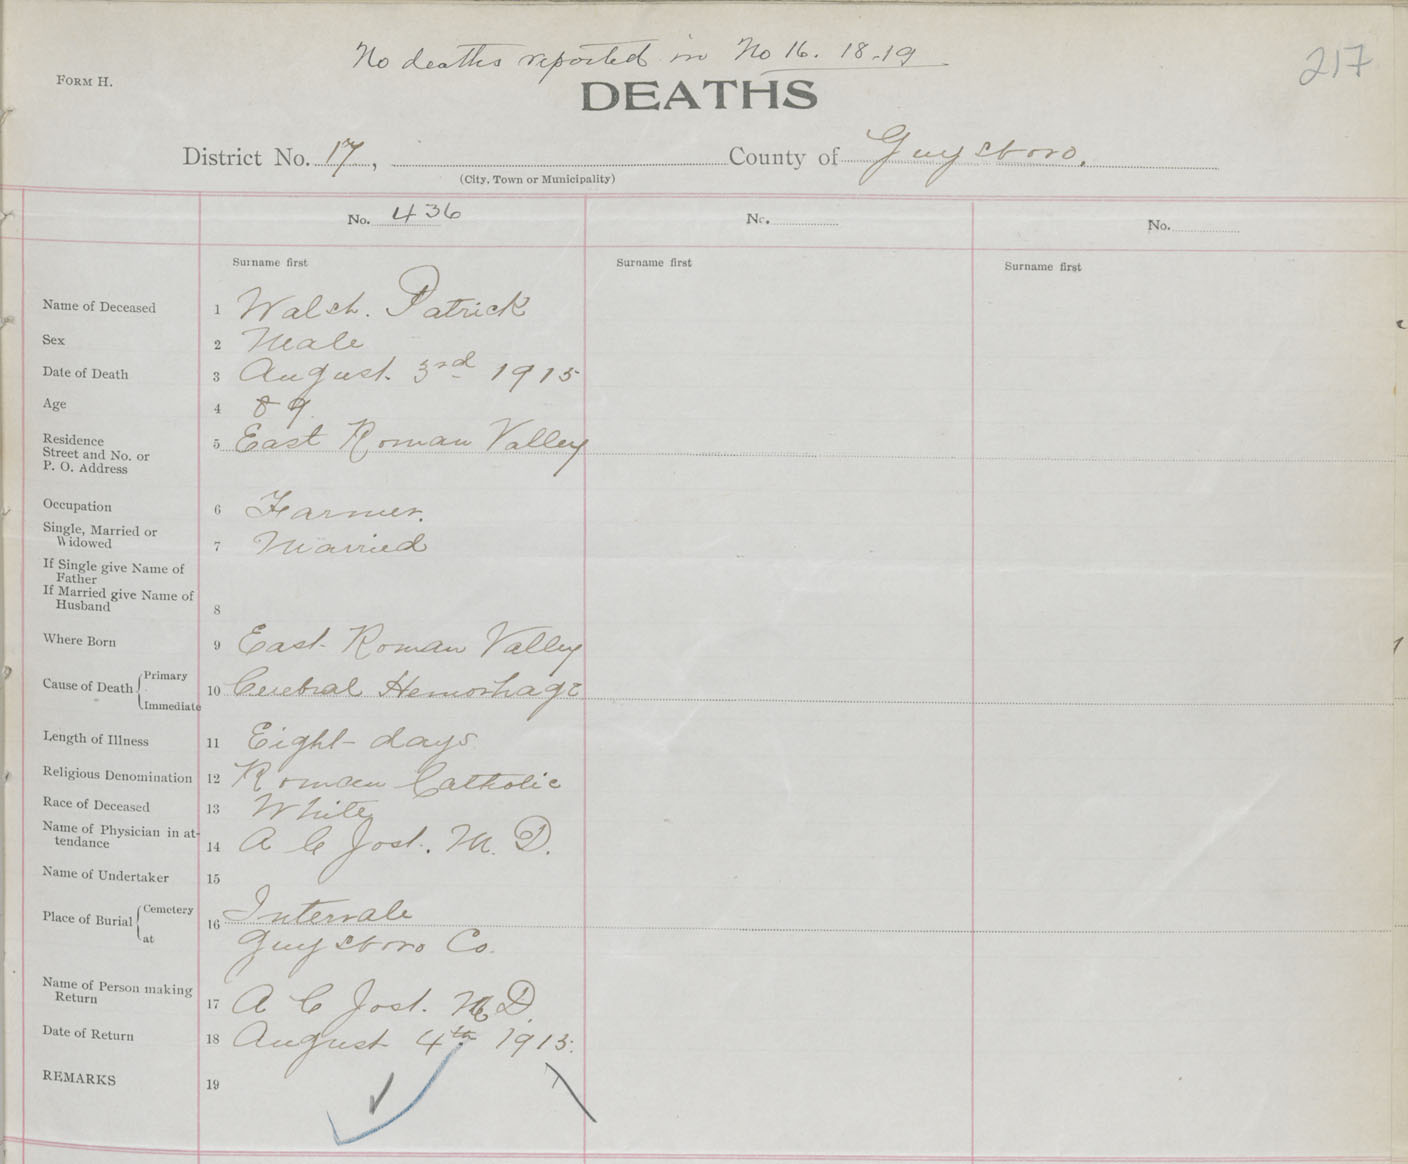 No deaths reported in No 16. 18-19
217
FORM H.
DEATHS
District No. 17, County of Guysboro.
(City, Town or Municipality)
No. 436 No. No.
Surname first Surname first Surname first
Name of Deceased 1 Walsh. Patrick
Sex 2 Male
Date of Death 3 August. 3rd 1915
Age 4 89
Residence
Street and No. or 5 East Roman Valley
P. O. Address
Occupation 6 Farmer.
Single, Married or
Widowed 7 Married
If Single give Name of
Father
If Married give Name of
Husband 8
Where Born 9 East Roman Valley
Primary
Cause of Death 10 Cerebral Hemorhage
Immediate
Length of Illness 11 Eight days
Religious Denomination 12 Roman Catholic
Race of Deceased 13 White
Name of Physician in at-
tendance 14 A C Jost. M. D.
Name of Undertaker 15
Cemetery
Place of Burial 16 Intervale
at Guysboro Co.
Name of Person making
Return 17 A C Jost. M D.
Date of Return 18 August 4th 1915.
REMARKS 19